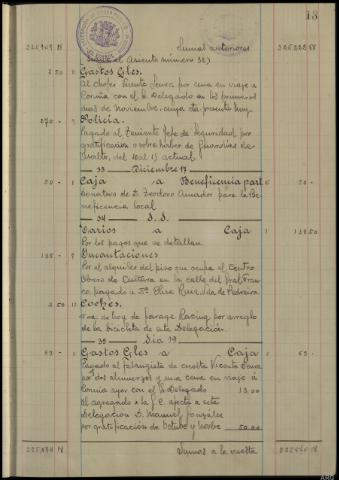 13
Sumas anteriores
(Sigue el Asiento número 32)
Gastos Gles.
Al chofer por cena en viaje a
Coruña con el Sr Delegado en los primeros
días de Noviembre, cuya cta presenta hoy
270 - Policía.
Pagado al Teniente Jefe de Seguridad por
gratificación sobre haber de guardias de
Asalto, del 10 al 15 actual
33 Diciembre 17
50 - Caja a Beneficencia part 50 -
Donativo de D. Teodoro Amador para la Be-
neficencia local
34 d. d.
Varios a Caja
Por los pagos que se detallan
Incautaciones
Por el alquiler del piso que ocupa el Centro
Obrero de Cultura en la calle del
pagado a Dª Elisa de Pedreira
Coches.
Fra de hoy de Garage Racing por arreglo
de la bicicleta de esta Delegación
35 Día 19
63 - Gastos Gles a Caja 63 -
Pagado al falangista de escolta Vicente
por dos almuerzos y una cena en viaje a
Coruña ayer con el Sr Delegado 13.00
Al agregado a la S.C. afecto a esta
Delegación D. Manuel González
por gratificación de Octubre y Novbre 50.00
Sumas a la vuelta